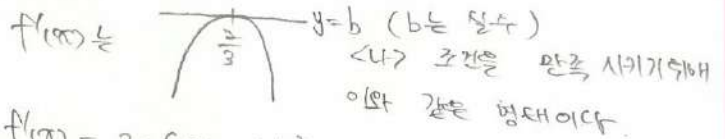 f'(x)는 y=b (b는 실수)
2/3
<나> 조건을 만족 시키기위해
이와 같은 형태이다
f'(x) =